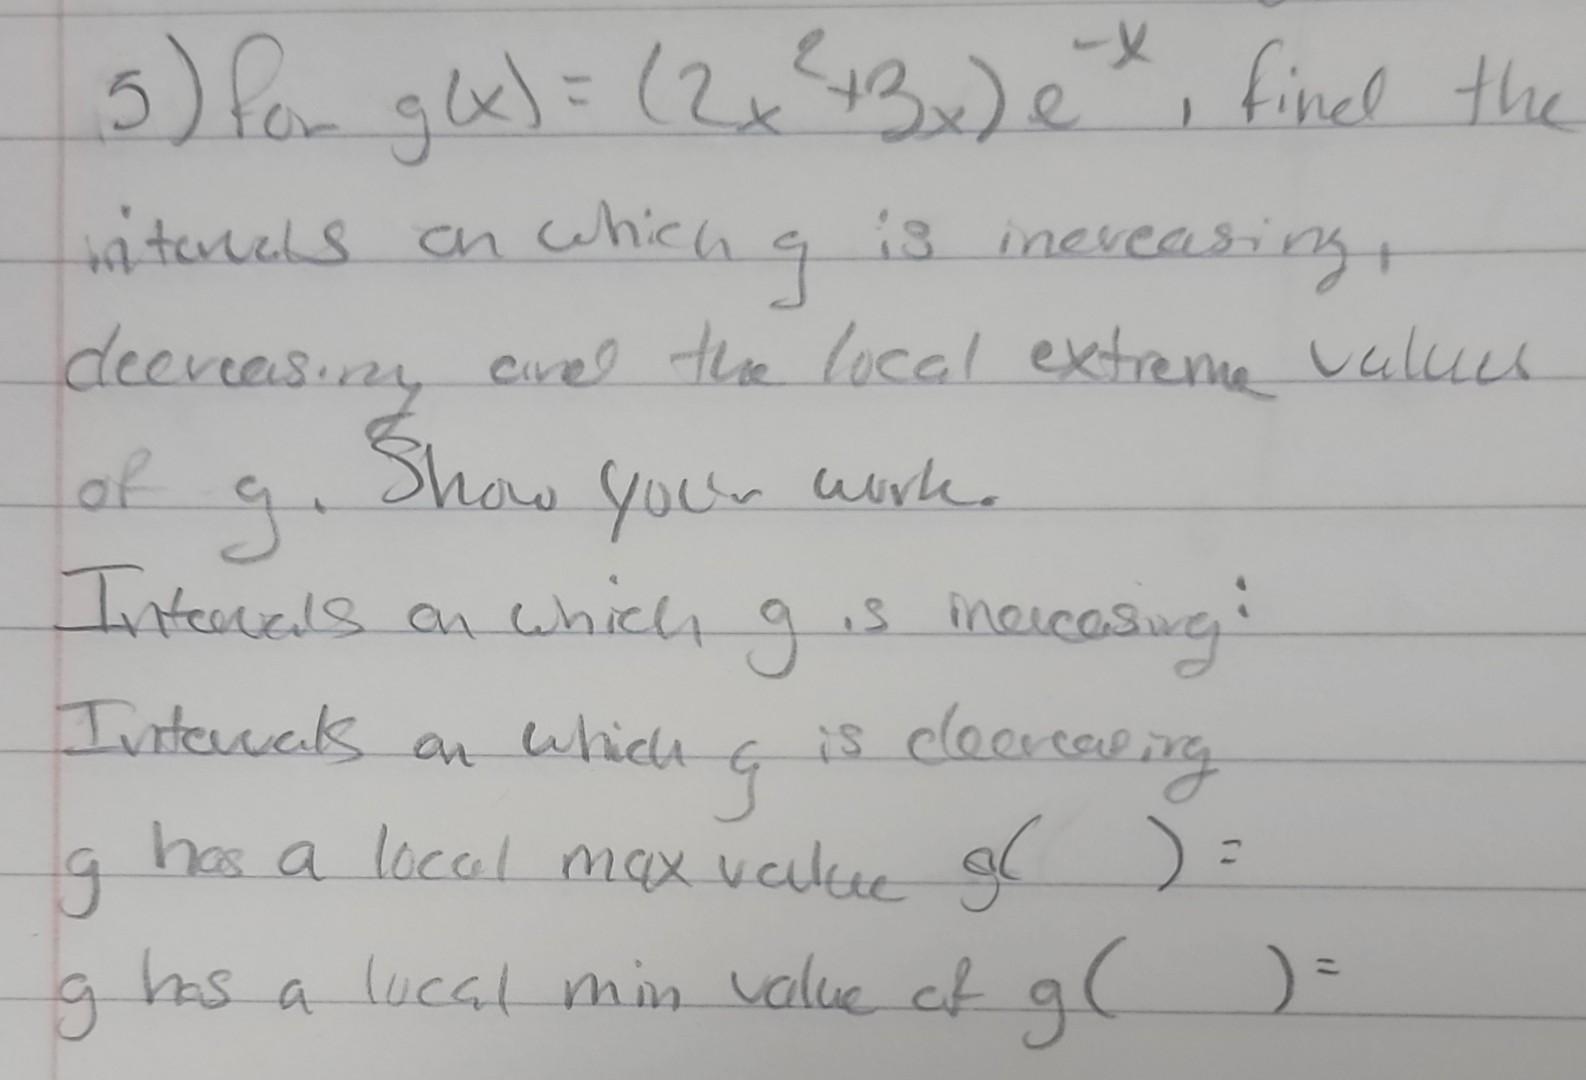 5) for g(x) = (2x²+3x)e⁻ˣ, find the
intervals on which g is increasing,
decreasing and the local extreme values
of g. Show your work.
Intervals on which g is increasing:
Intervals on which g is decreasing
g has a local max value g( ) =
g has a local min value of g( ) =